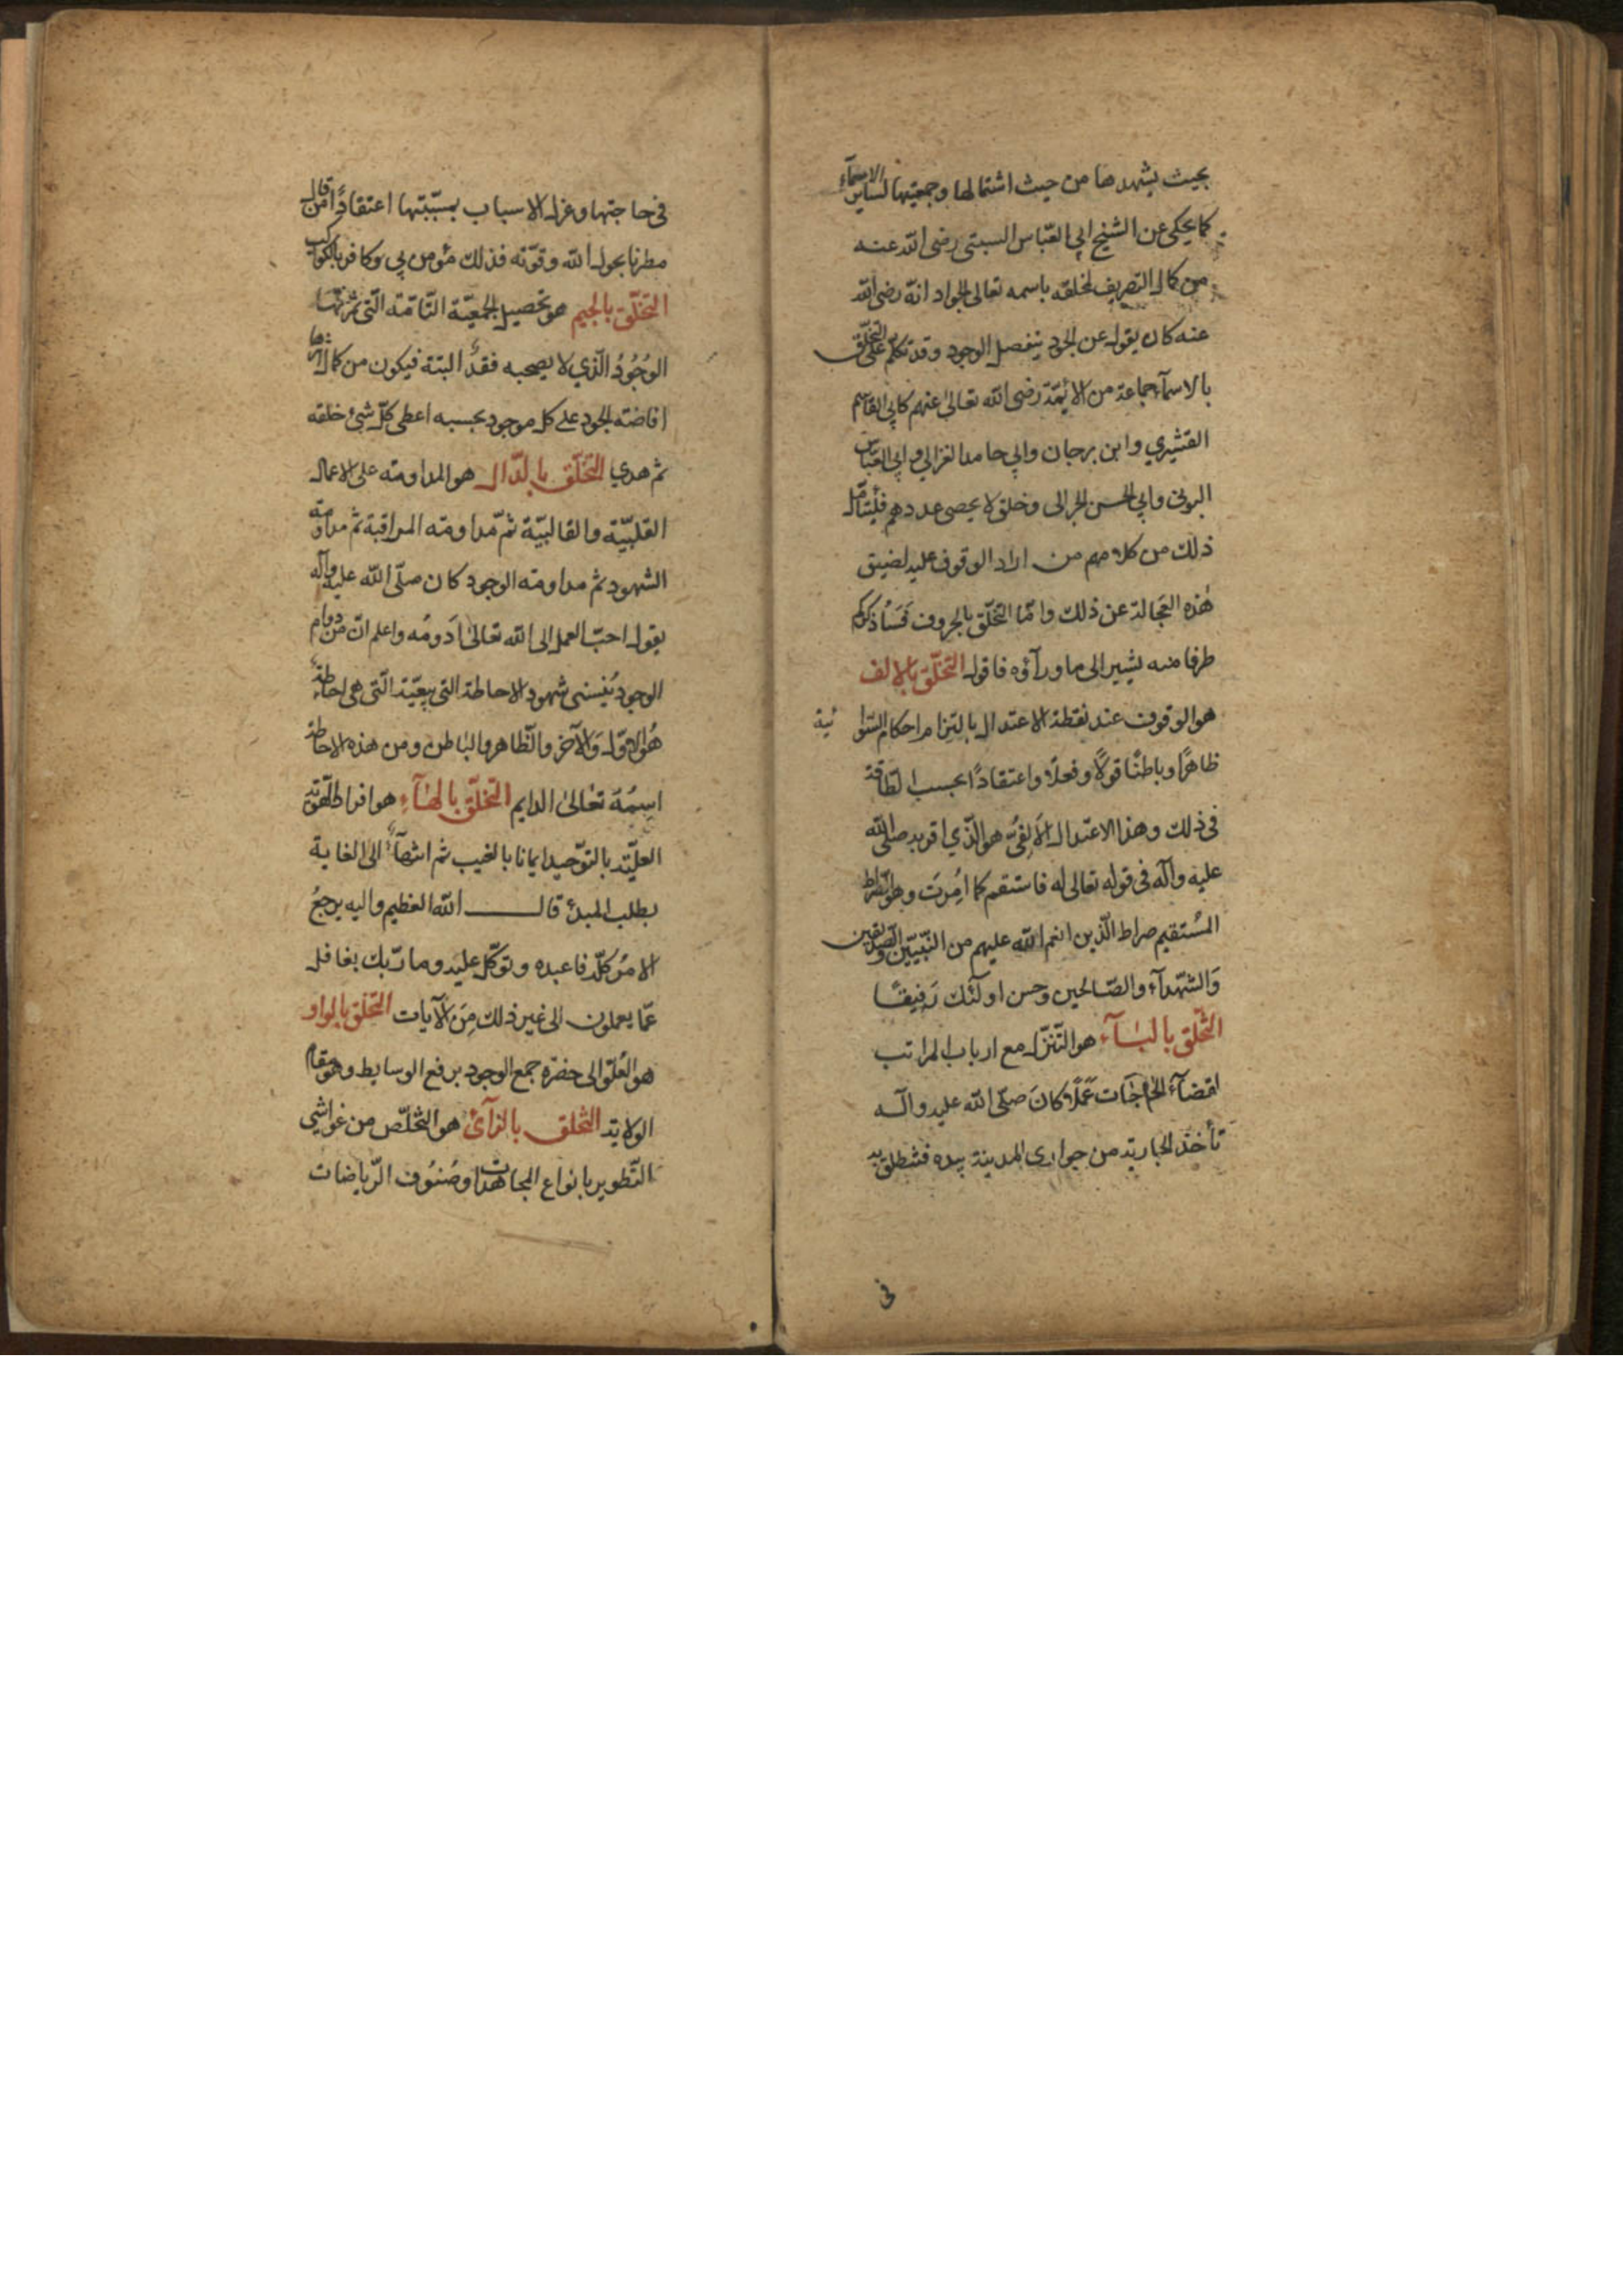 بحيث يشهدها من حيث اشتمالها وجمعيتها لساير الاسمآء
كما يحكى عن الشيخ ابي العبّاس السبتي رضى الله عنه
من كمال التصريف لتخلقه باسمه تعالى الجواد انه رضى الله
عنه كان يقول عن الجود ينفصل الوجود وقد تكلم على التخلّق
بالاسمآء جماعة من الائمّة رضى الله تعالى عنهم كابي القاسم
القشيري وابن برجان وابي حامد الغزالي وابي العبّاس
البوني وابي الحسن الحرالى وخلق لا يحصى عددهم فليتأمّل
ذلك من كلامهم من اراد الوقوف عليه لضيق
هٰذه العجالة عن ذلك وامّا التخلّق بالحروف فسأذكر لكم
طرفا منه يشير الى ما ورآؤه فاقول التخلّق بالالف
هو الوقوف عند نقطة الاعتدال بالتزام احكام السّوائية
ظاهرًا وباطنًا قولًا وفعلًا واعتقادًا بحسب الطّاقة
فى ذلك وهذا الاعتدال الالِفيّ هو الّذي اقر به صلى الله
عليه وآله فى قوله تعالى له فاستقم كما اُمِرتَ وهو الصّراط
المُستقيم صراط الّذين انعم اللّه عليهم من النّبيّين والصّدّيقين
وَالشّهدآء والصّالحين وحسن اولٰئك رَفيقًا
التّخلّق بالبَآء هو التّنزّل مع ارباب المراتب
لقضآء الحاجَات عَمَلًا كانَ صلّى الله عليه وآله
تأخذ الجارية من جوارى المدينة بيده فتنطلق به
فى
فى حاجتها وعزل الاسباب بمسبّبتها اعتقادًا من قال
مطرنا بحول الله وقوّته فذلك مؤمن بي وكافر بالكواكب
التّخلّق بالجيم هو تحصيل الجمعيّة التّامّة الّتى ثمرتها
الوُجُودُ الّذي لا يصحبه فقدٌ البتة فيكون من كمال اثرها
افاضته الجود على كل موجود بحسبه اعطى كلّ شئ خلقه
ثم هدي التّخلّق بالدّال هو المداومة على الاعمال
القلبيّة والقالبيّة ثمّ مداومة المراقبة ثم مداومة
الشهود ثم مداومة الوجود كان صلّى الله عليه وآله
يقول احبّ العمل الى الله تعالى اَدومُه واعلم انّ من دوام
الوجود يُنشئ شهود الاحاطة التى بمعيّة الّتى هى احاطة
هُوَ الاوّل وَالآخر والظّاهر والبَاطن ومن هذه الاحاطة
اسمُهُ تعالى الدايم التّخلّق بالهَآء هو افراط الهوّية
العليّة بالتوّحيد ايمانا بالغيب ثم انتهآءً الى الغاية
بطلب المبدئ قال الله العظيم واليه يرجعُ
الامرُ كلّه فاعبده وتوكّل عليه وما ربّك بغافل
عمّا يعملون الى غير ذلك مِنَ الآيات التّخلّق بالواو
هو العُلوّ الى حضرة جمع الوجود برفع الوسايط وهو مقام
الولاية التّخلق بالزآئ هو التّخلّص من غواشي
التّطوير بانواع المجاهدات وصُنُوف الرّياضات